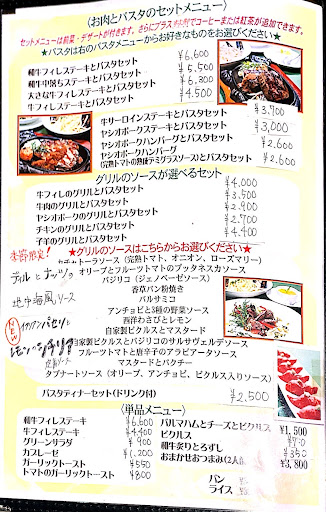 〈お肉とパスタのセットメニュー〉
セットメニューは前菜・デザートが付きます。さらにプラスでコーヒーまたは紅茶が追加できます。
★パスタは右のパスタメニューからお好きなものをお選びください★
和牛フィレステーキとパスタセット ¥6,600
和牛中落ちステーキとパスタセット ¥5,500
大きな牛フィレステーキとパスタセット ¥6,300
牛フィレステーキとパスタセット ¥4,500
牛サーロインステーキとパスタセット ¥3,700
ヤシオポークステーキとパスタセット ¥3,000
ヤシオポークハンバーグとパスタセット ¥2,600
ヤシオポークハンバーグ
(完熟トマトの熟成デミグラスソース)とパスタセット ¥2,600
〈グリルのソースが選べるセット〉
牛フィレのグリルとパスタセット ¥4,000
牛肉のグリルとパスタセット ¥3,500
ヤシオポークのグリルとパスタセット ¥2,900
チキンのグリルとパスタセット ¥2,700
子羊のグリルとパスタセット ¥4,400
★グリルのソースはこちらからお選びください★
季節限定!
カチャトーラソース(完熟トマト、オニオン、ローズマリー)
ディルとナッツの
オリーブとフルーツトマトのプッタネスカソース
バジリコ(ジェノベーゼソース)
地中海風ソース
香草パン粉焼き
バルサミコ
アンチョビと3種の野菜ソース
イタリアンパセリと
西洋わさびとレモン
自家製ピクルスとマスタード
自家製ピクルスとバジリコのサルサヴェルデソース
フルーツトマトと唐辛子のアラビアータソース
マスタードとパクチー
タプナートソース(オリーブ、アンチョビ、ピクルス入りソース)
パスタディナーセット(ドリンク付) ¥2,500
〈単品メニュー〉
和牛フィレステーキ ¥6,600
牛フィレステーキ ¥4,400
グリーンサラダ ¥900
カプレーゼ ¥1,200
ガーリックトースト ¥550
トマトのガーリックトースト ¥800
パルマハムとチーズとピクルス ¥1,500
ピクルス
和牛炙りとろずし ¥350
おまかせおつまみ(2人前 ¥3,800
パン
ライス